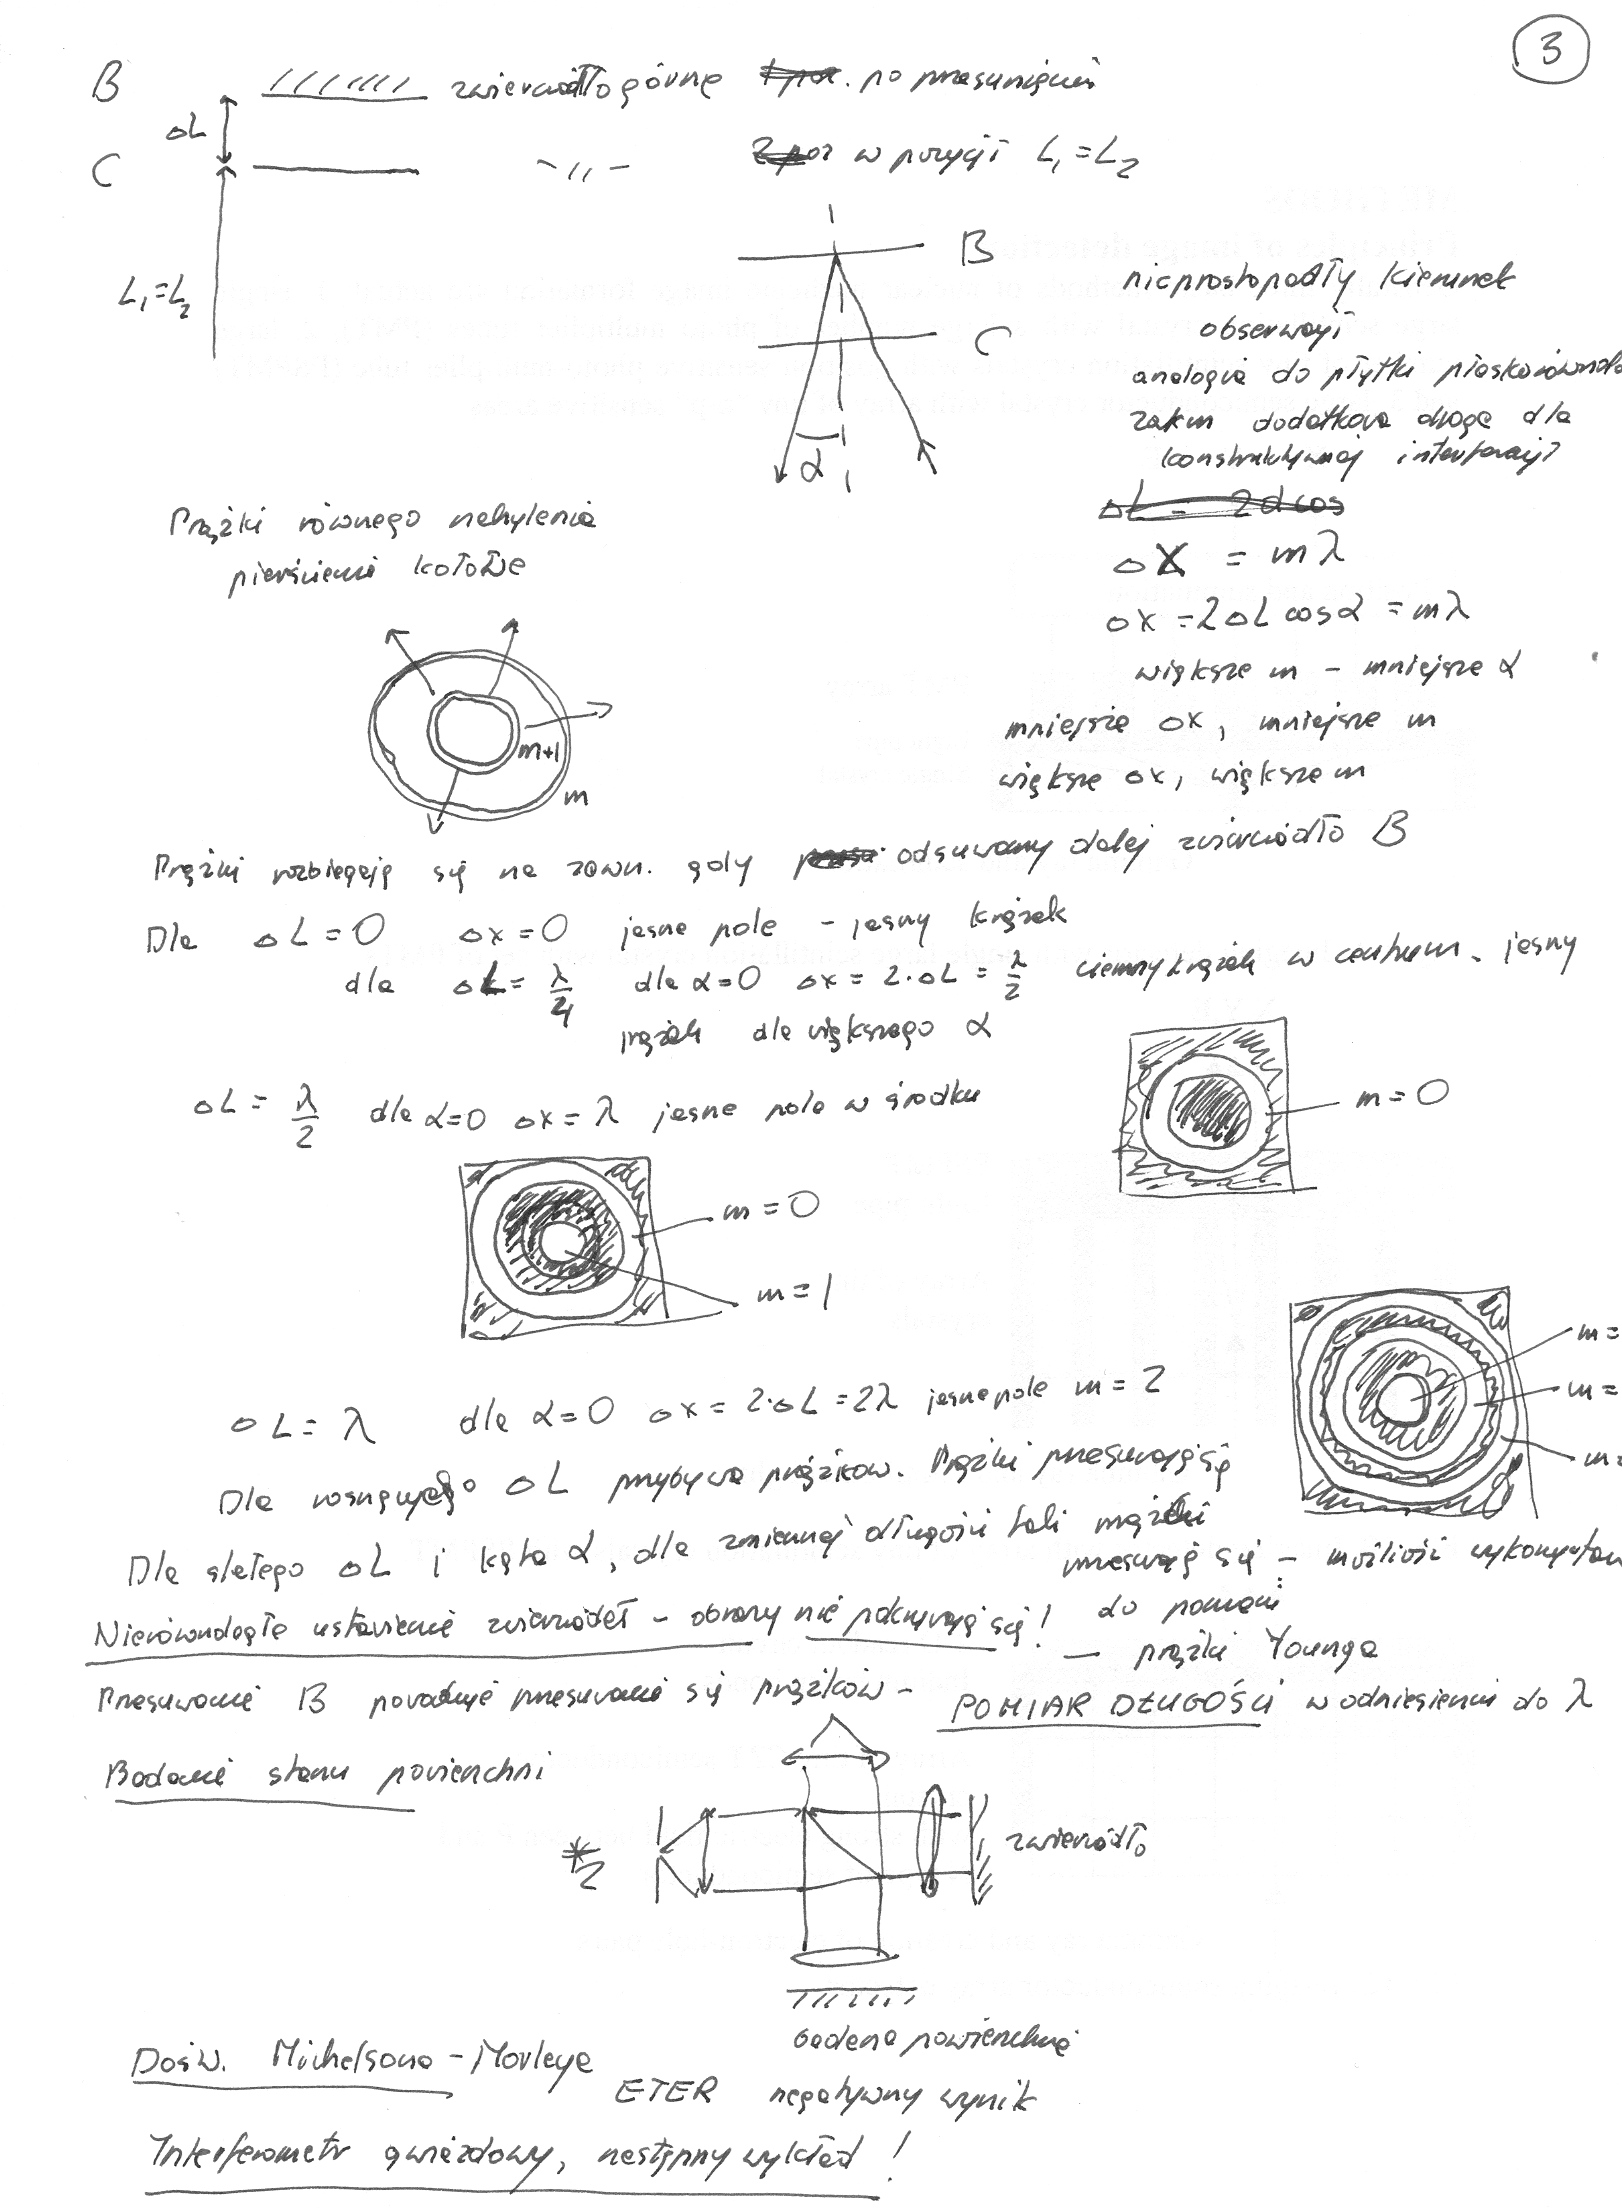 3
B zwierciadło górne po przesunięciu
ΔL
C -„- w pozycji L₁=L₂
L₁=L₂
B
C
α
nieprostopadły kierunek
obserwacji
analogia do płytki płaskorównol
zatem dodatkowa droga dla
konstruktywnej interferencji
ΔL = 2d cos
Δx = mλ
Δx = 2ΔL cosα = mλ
większe m - mniejsze α
mniejsze Δx, mniejsze m
większe Δx, większe m
Prążki równego nachylenia
pierścienie kołowe
m+1
m
Prążki rozbiegają się na zewn. gdy odsuwamy dalej zwierciadło B
Dla ΔL=0 Δx=0 jasne pole - jasny krążek
dla ΔL = λ/4 dla α=0 Δx = 2·ΔL = λ/2 ciemny krążek w centrum. jasny
prążek dla większego α
m=0
ΔL = λ/2 dla α=0 Δx = λ jasne pole w środku
m=0
m=1
m=
m=
m=
ΔL = λ dla α=0 Δx = 2·ΔL = 2λ jasne pole m=2
Dla rosnącego ΔL przybywa prążków. Prążki przesuwają się
Dla stałego ΔL i kąta α, dla zmiennej długości fali prążki
przesuwają się - możliwość
do pomiaru
Nierównoległe ustawienie zwierciadeł - obrazy nie pokrywają się!
- prążki Younga
Przesuwanie B powoduje przesuwanie się prążków - POMIAR DŁUGOŚCI w odniesieniu do λ
Badanie stanu powierzchni
Z
zwierciadło
badana powierzchnia
Dośw. Michelsona-Morleya
ETER negatywny wynik
Interferometr gwiazdowy, następny wykład!